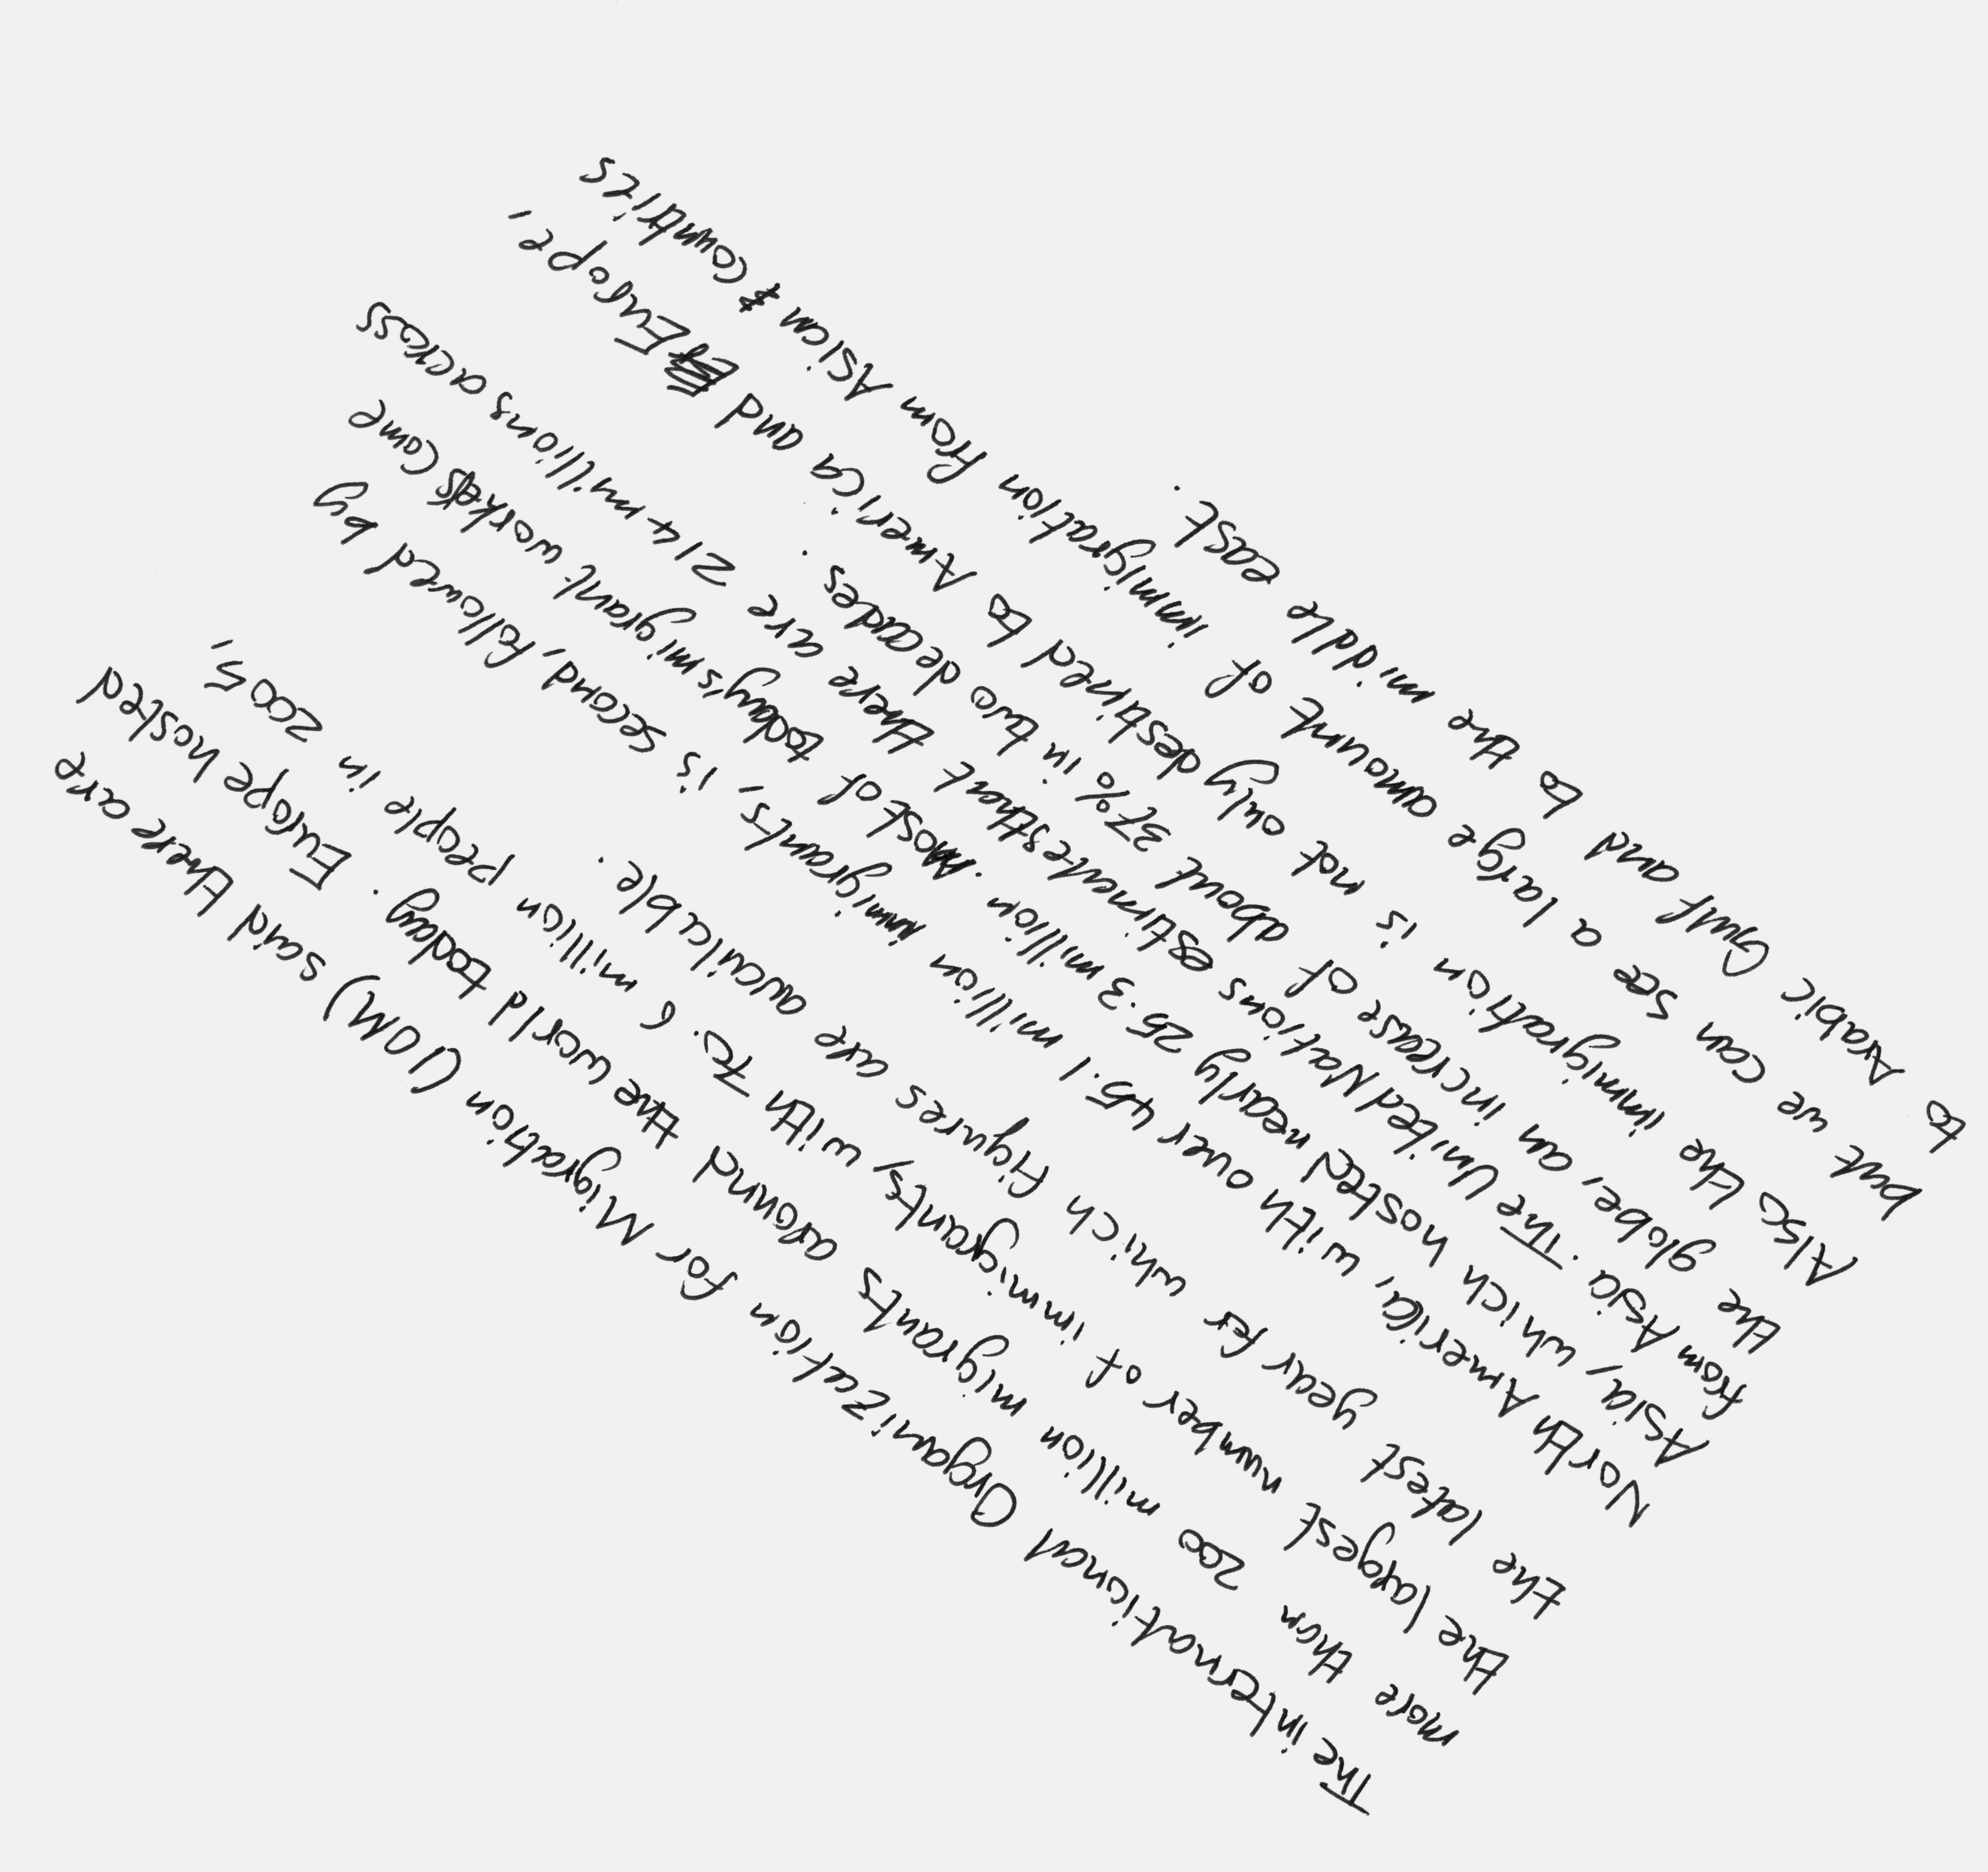 The international Organization for Migration (IOM) said there are
more than 200 million migrants around the world today. Europe hosted
the largest number of immigrants, with 70.6 million people in 2005,
the latest year for which figures are available.
North America, with over 45.1 million immigrants, is second, followed by
Asia, which hosted nearly 25.3 million. Most of today's migrant workers came
from Asia. The United Nations estimates that there are 214 millions across
the globe, an increase of about 37% in two decades.
Also the immigration is not only destined to America and Europe,
but we can see a large amount of immigration from Asian countries
to Arabic Gulf and to the middle east.